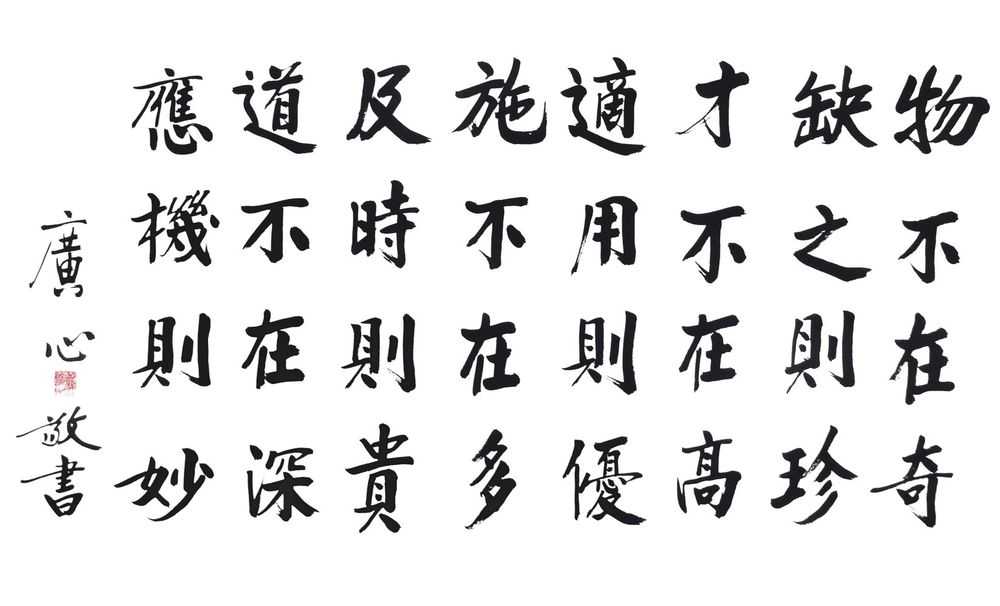 物不在奇
缺之則珍
才不在高
適用則優
施不在多
及時則貴
道不在深
應機則妙
廣心敬書